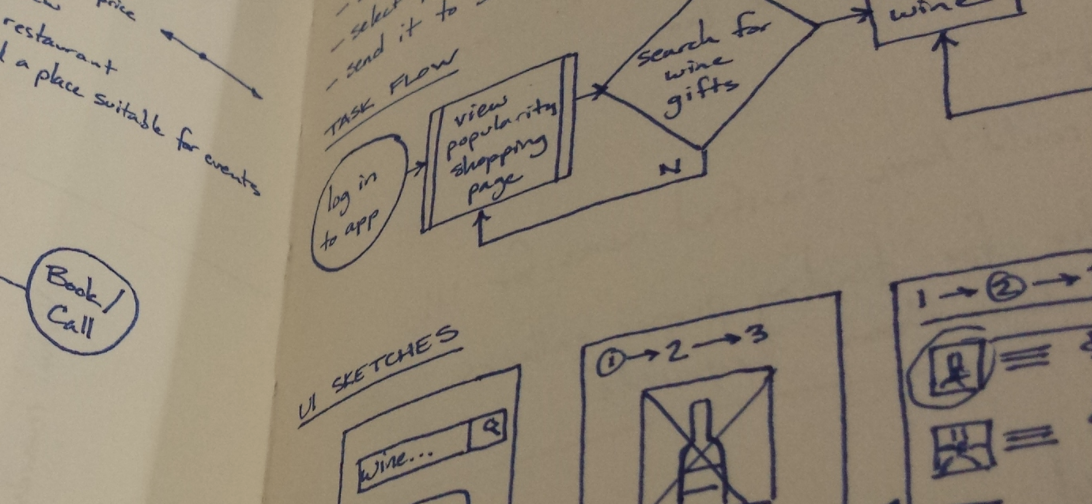 price
restaurant
a place suitable for events
Book/
Call
- select
- send it to
TASK FLOW
log in
to app
view
popularity
shopping
page
search for
wine
gifts
N
wine
UI SKETCHES
wine...
1 → 2 → 3
1 → 2 →